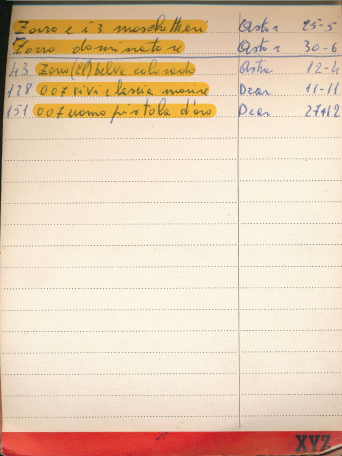 Zorro e i 3 moschettieri Astor 25-5
Zorro dominatore Astor 30-6
43 Zorro (el) belva colorado Astra 12-4
128 007 vivi e lascia morire Dear 11-11
151 007 uomo pistola d'oro Dear 27-12
XYZ